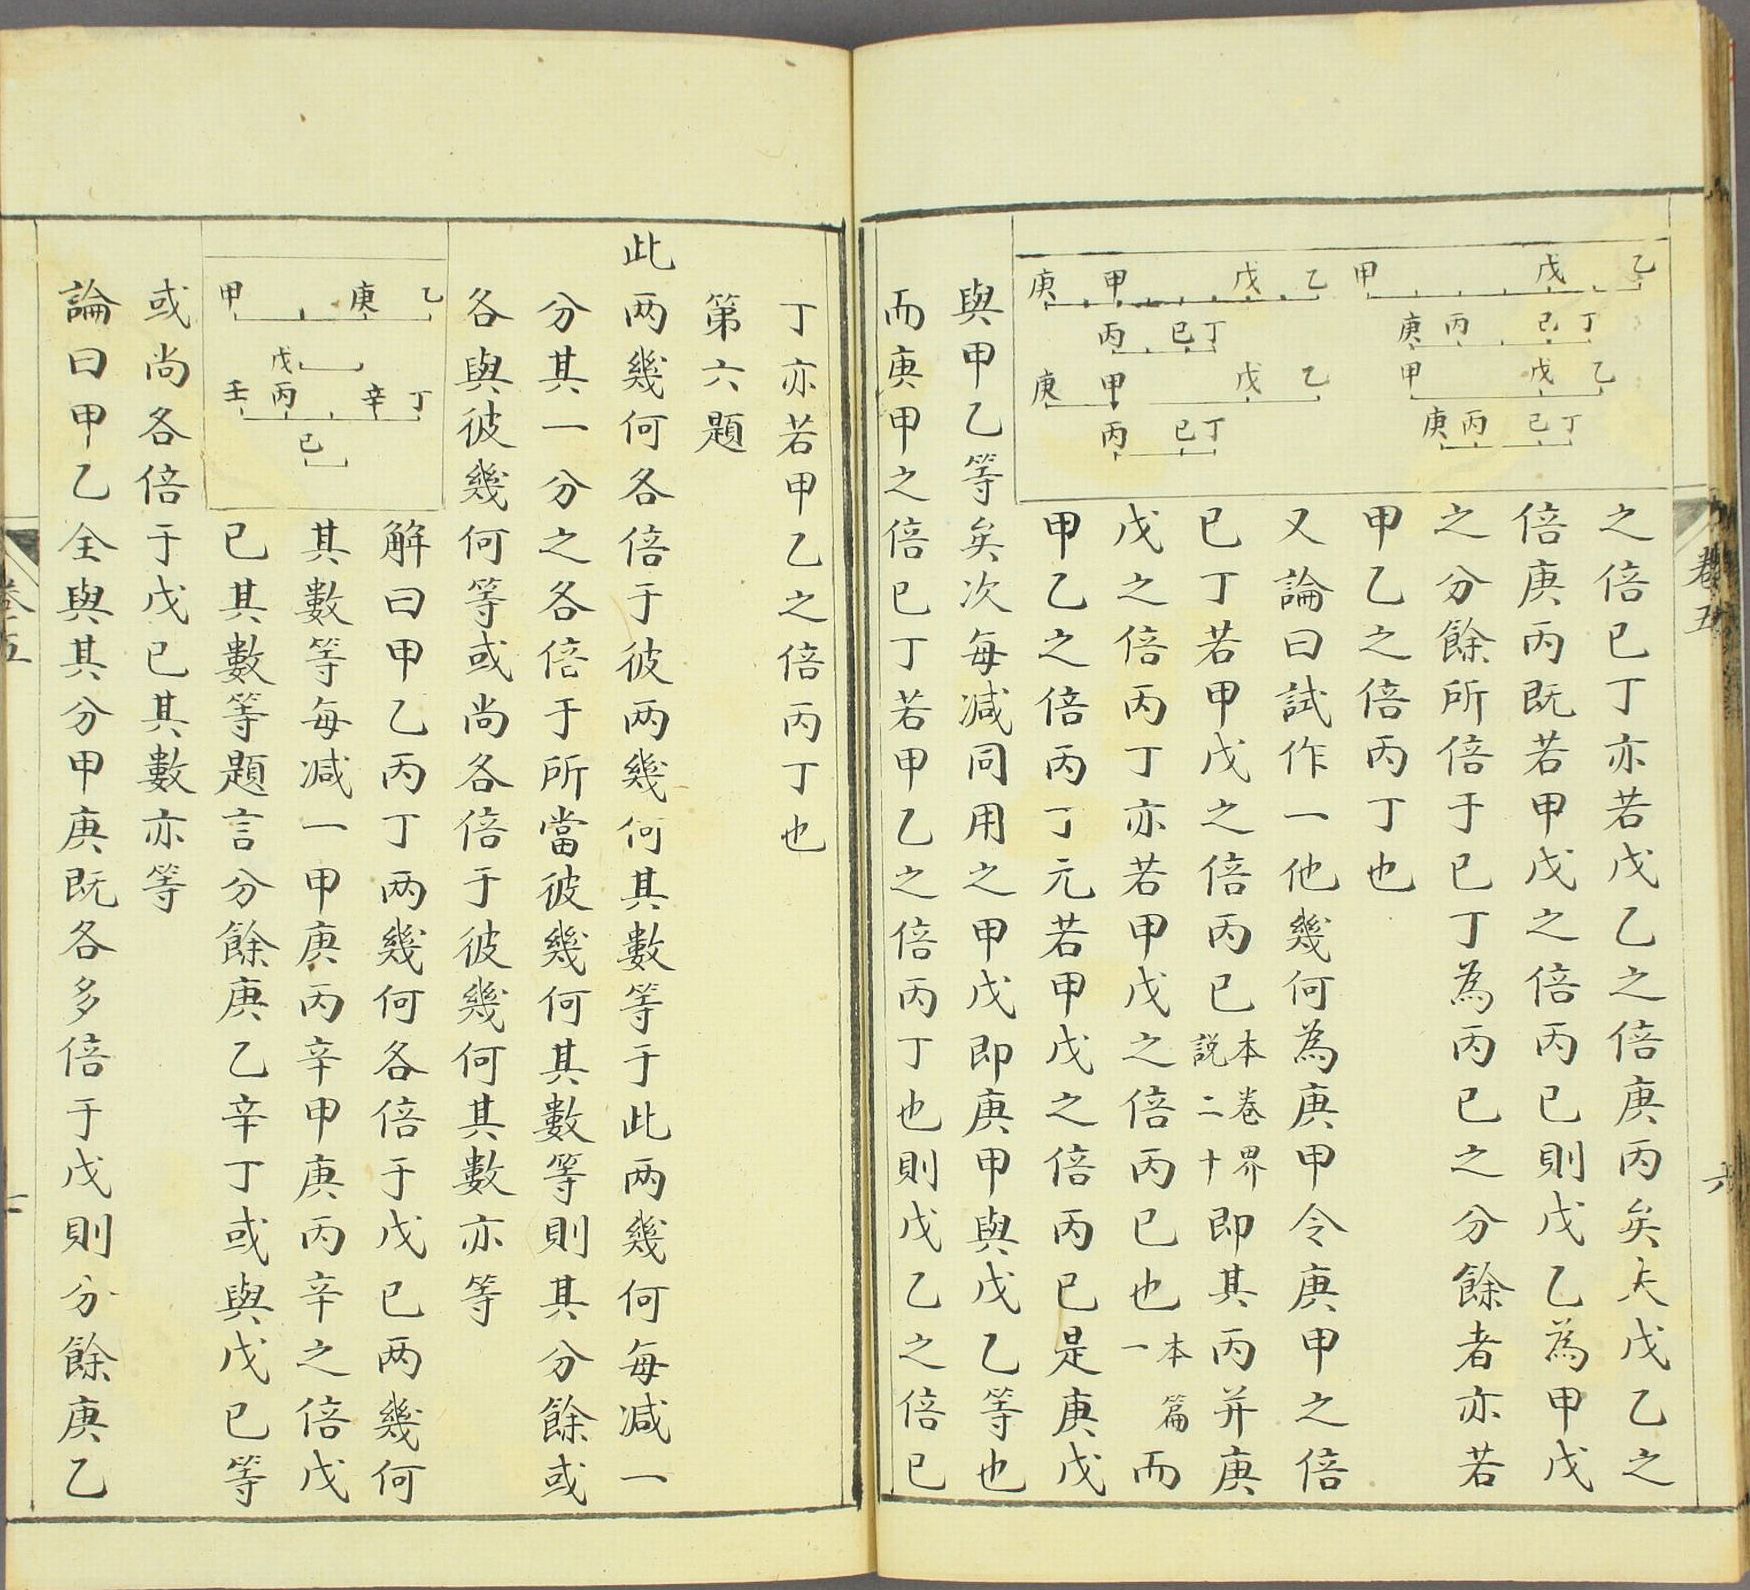 乙 戊 甲
丁 已 丙 庚
乙 戊 甲
丁 已 丙 庚
乙 戊 甲 庚
丁 已 丙
乙 戊 甲 庚
丁 已 丙
之倍已丁亦若戊乙之倍庚丙矣夫戊乙之
倍庚丙既若甲戊之倍丙已則戊乙為甲戊
之分餘所倍于已丁為丙已之分餘者亦若
甲乙之倍丙丁也
又論曰試作一他幾何為庚甲令庚甲之倍
已丁若甲戊之倍丙已本卷界說二十即其丙并庚
戊之倍丙丁亦若甲戊之倍丙已也本篇一而
甲乙之倍丙丁元若甲戊之倍丙已是庚戊
與甲乙等矣次每減同用之甲戊即庚甲與戊乙等也
而庚甲之倍已丁若甲乙之倍丙丁也則戊乙之倍已
卷五
六
丁亦若甲乙之倍丙丁也
第六題
此兩幾何各倍于彼兩幾何其數等于此兩幾何每減一
分其一分之各倍于所當彼幾何其數等則其分餘或
各與彼幾何等或尚各倍于彼幾何其數亦等
乙 庚 甲
戊
丁 辛 丙 壬
已
解曰甲乙丙丁兩幾何各倍于戊已兩幾何
其數等每減一甲庚丙辛甲庚丙辛之倍戊
已其數等題言分餘庚乙辛丁或與戊已等
或尚各倍于戊已其數亦等
論曰甲乙全與其分甲庚既各多倍于戊則分餘庚乙
卷五